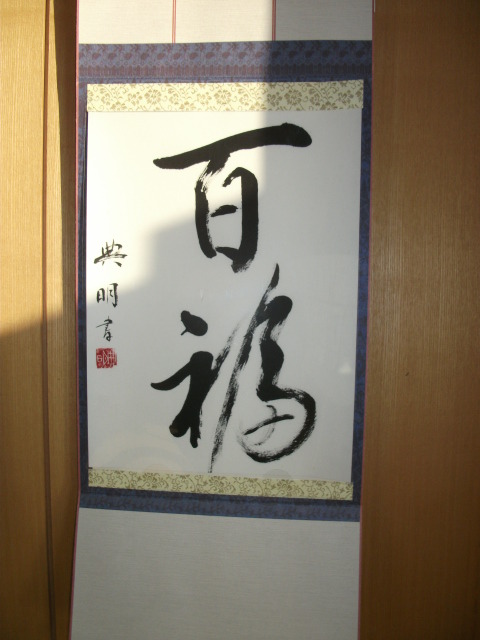 百福
典明書